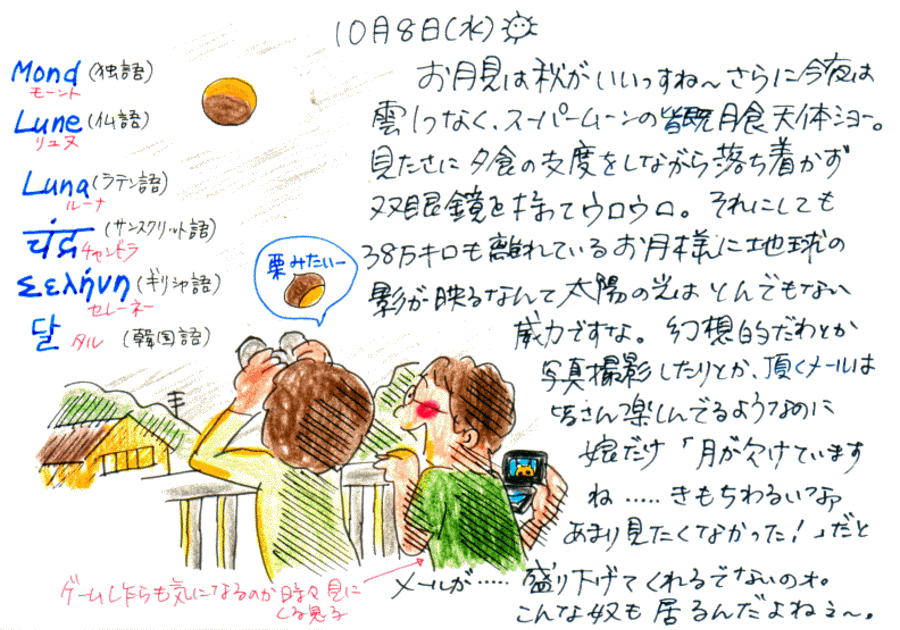 10月8日(水)
Mond (独語)
モーント
Lune (仏語)
リュヌ
Luna (ラテン語)
ルーナ
(サンスクリット語)
チャンドラ
Σελήνη (ギリシャ語)
セレーネー
달 タル (韓国語)
栗みたいー
お月見は秋がいいっすね〜さらに今夜は
雲1つなく、スーパームーンの皆既月食天体ショー。
見たさに夕食の支度をしながら落ち着かず
双眼鏡を持ってウロウロ。それにしても
38万キロも離れているお月様に地球の
影が映るなんて太陽の光はとんでもない
威力ですな。幻想的だわとか
写真撮影したりとか、頂くメールは
皆さん楽しんでるようなのに
娘だけ「月が欠けています
ね……きもちわるいなあ
あまり見たくなかった!」だと
メールが……盛り下げてくれるでないのォ。
こんな奴も居るんだよねェ〜。
ゲームし乍らも気になるのか時々見に
くる息子